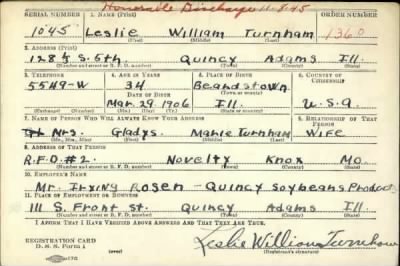 Honorable Discharge 11-8-45
SERIAL NUMBER 1. NAME (Print) ORDER NUMBER
1045 Leslie William Turnham 1360
(First) (Middle) (Last)
2. ADDRESS (Print)
128½ S. 5th. Quincy Adams Ill.
(Number and street or R. F. D. number) (Town) (County) (State)
3. TELEPHONE 4. AGE IN YEARS 5. PLACE OF BIRTH 6. COUNTRY OF CITIZENSHIP
5549-W 34 Beardstown
DATE OF BIRTH (Town or county)
Mar. 29 1906 Ill. U.S.A.
(Exchange) (Number) (Mo.) (Day) (Yr.) (State or country)
7. NAME OF PERSON WHO WILL ALWAYS KNOW YOUR ADDRESS 8. RELATIONSHIP OF THAT PERSON
Mrs. Gladys. Marie Turnham Wife
(Mr., Mrs., Miss) (First) (Middle) (Last)
9. ADDRESS OF THAT PERSON
R.F.D. #2. Novelty Knox Mo.
(Number and street or R. F. D. number) (Town) (County) (State)
10. EMPLOYER'S NAME
Mr. Irving Rosen - Quincy Soybeans Products
11. PLACE OF EMPLOYMENT OR BUSINESS
111 S. Front St. Quincy Adams Ill.
(Number and street or R. F. D. number) (Town) (County) (State)
I AFFIRM THAT I HAVE VERIFIED ABOVE ANSWERS AND THAT THEY ARE TRUE.
REGISTRATION CARD
D. S. S. Form 1
Leslie William Turnham
(Registrant's signature)